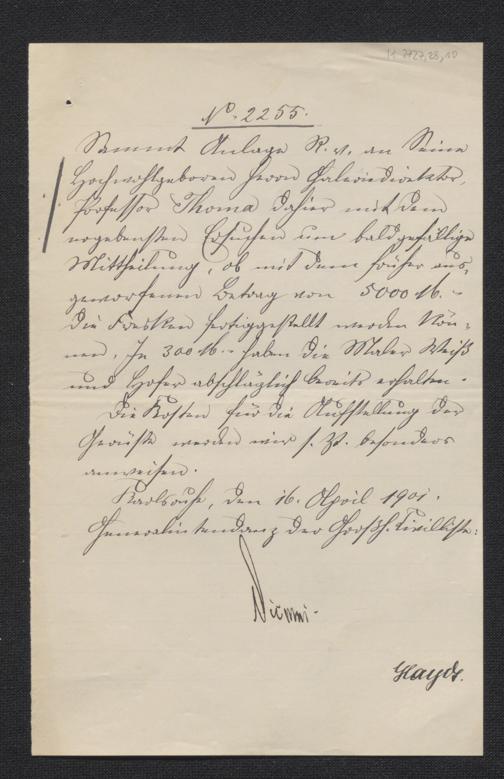 H 2727,28,10
No. 2255.
Sammt Anlage R. v. an Seine
Hochwohlgeboren Herrn Galeriedirektor,
Professor Thoma dahier mit dem
ergebensten Ersuchen um baldgefällige
Mittheilung, ob mit dem früher aus-
geworfenen Betrag von 5000 M. –
die Fresken fertiggestellt werden kön-
nen. Je 300 M. – haben die Maler Weiß
und Hofer abschläglich bereits erhalten.
Die Kosten für die Aufstellung der
Gerüste werden wir s. Zt. besonders
anweisen.
Karlsruhe, den 16. April 1901.
Generalintendanz der Großh. Civilliste: